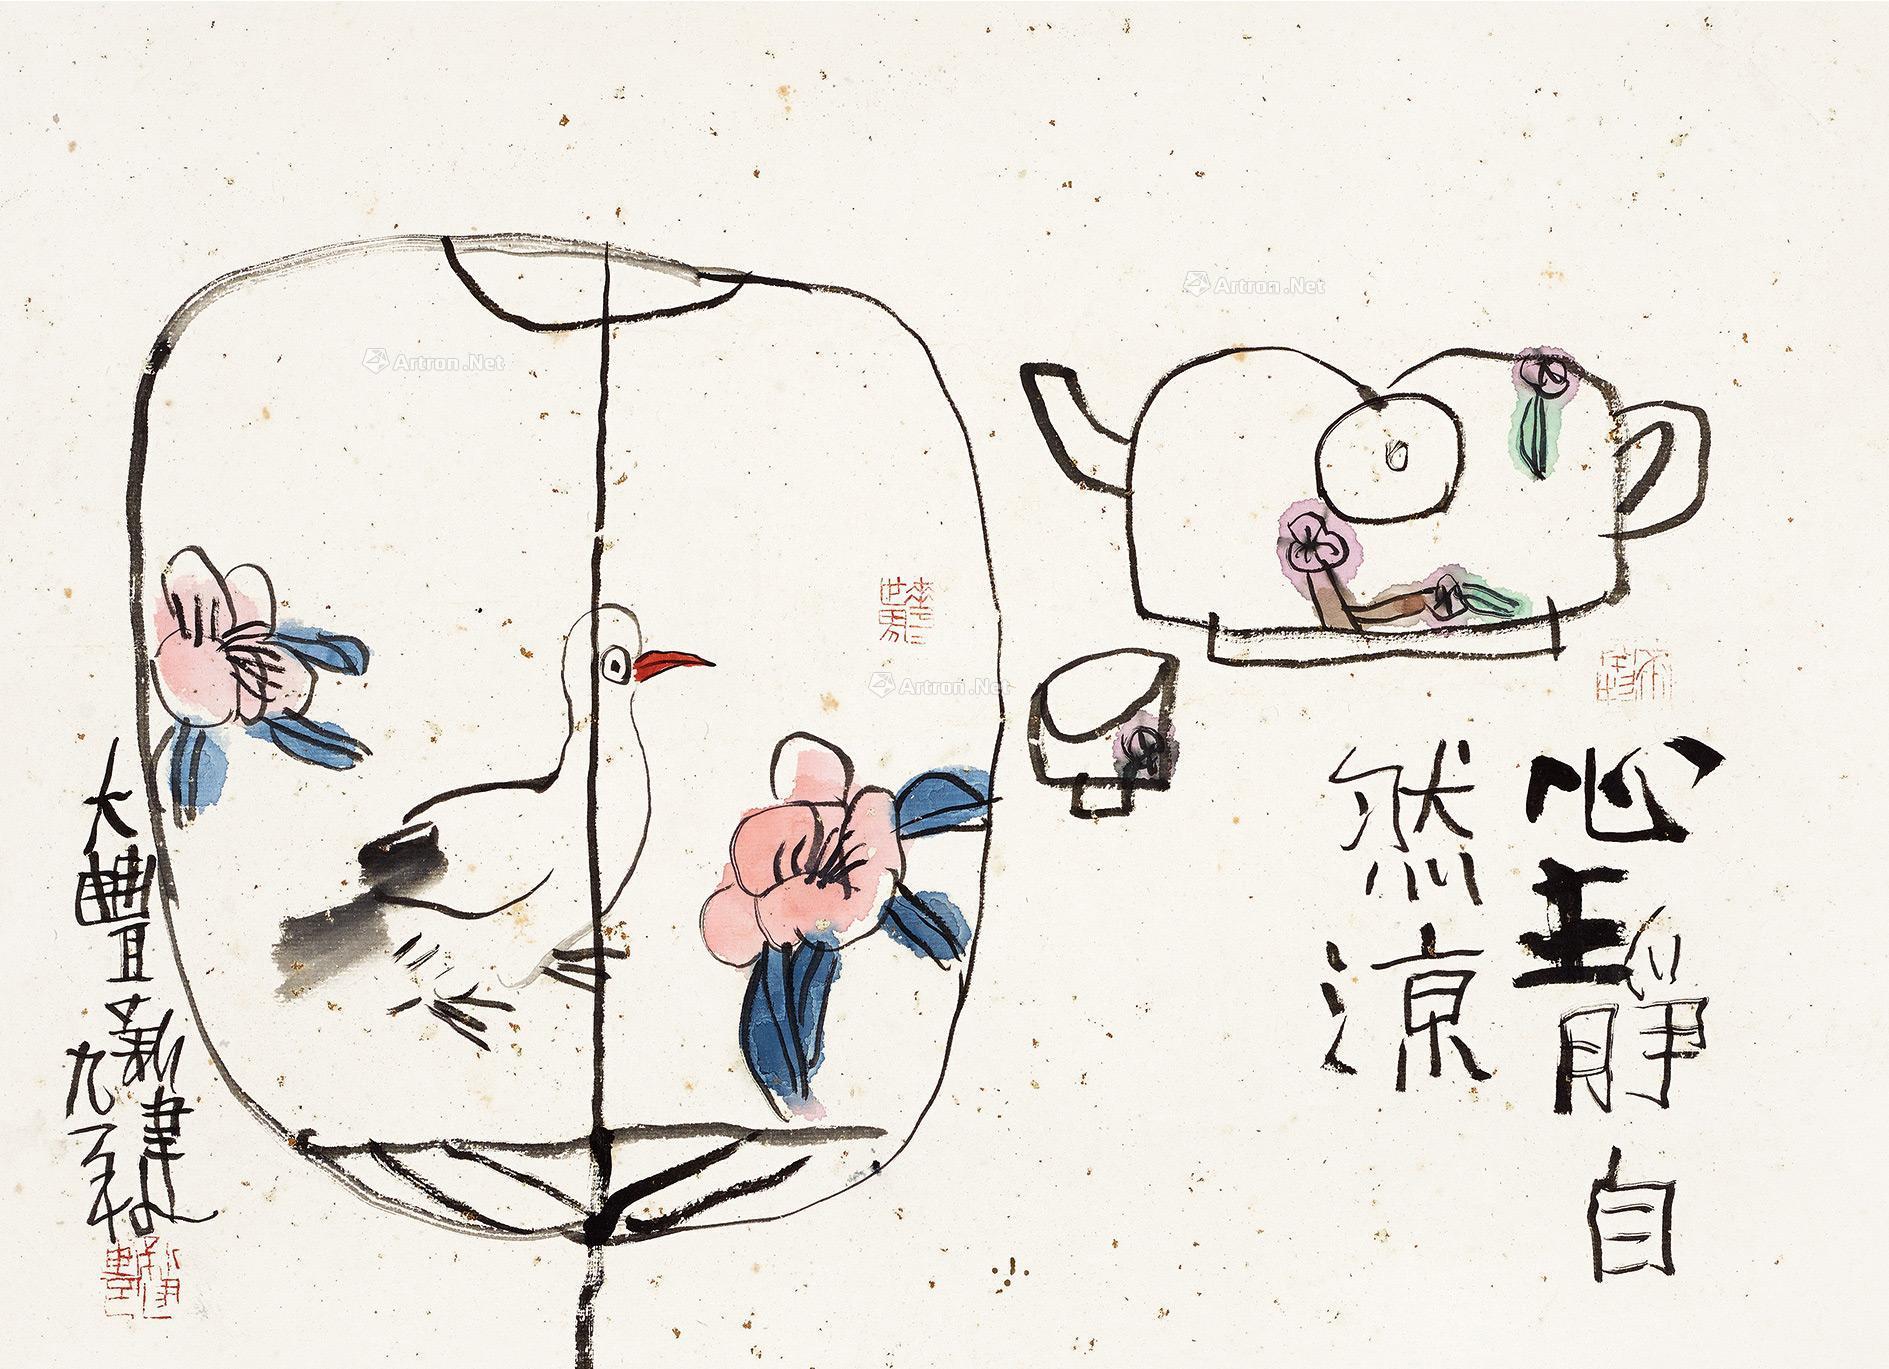 心静自
然涼
大豐新建
九七秋
Artron.Net
Artron.Net
Artron.Net